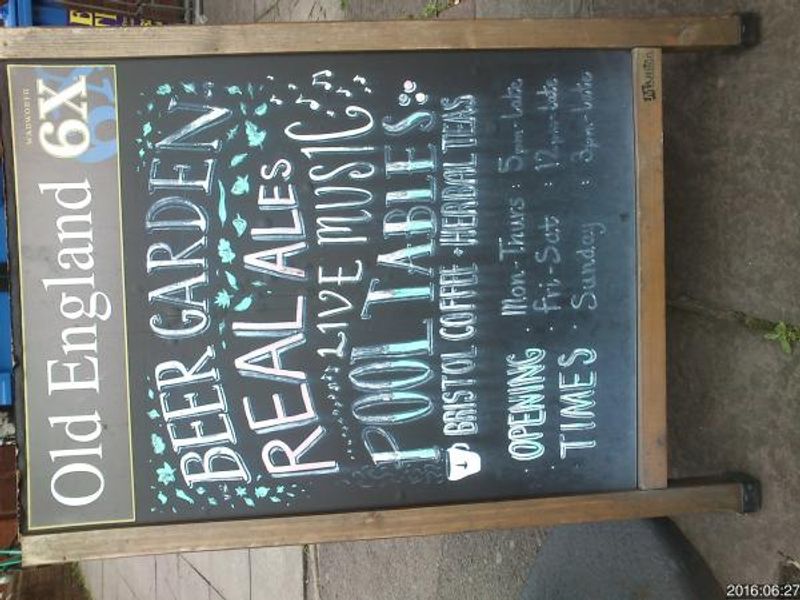 WADWORTH
Old England 6X
BEER GARDEN
REAL ALES
LIVE MUSIC
POOL TABLES
BRISTOL COFFEE + HERBAL TEAS
OPENING TIMES
Mon-Thurs : 5pm-Late
Fri-Sat : 12pm-Late
Sunday : 3pm-Late
2016:06:27